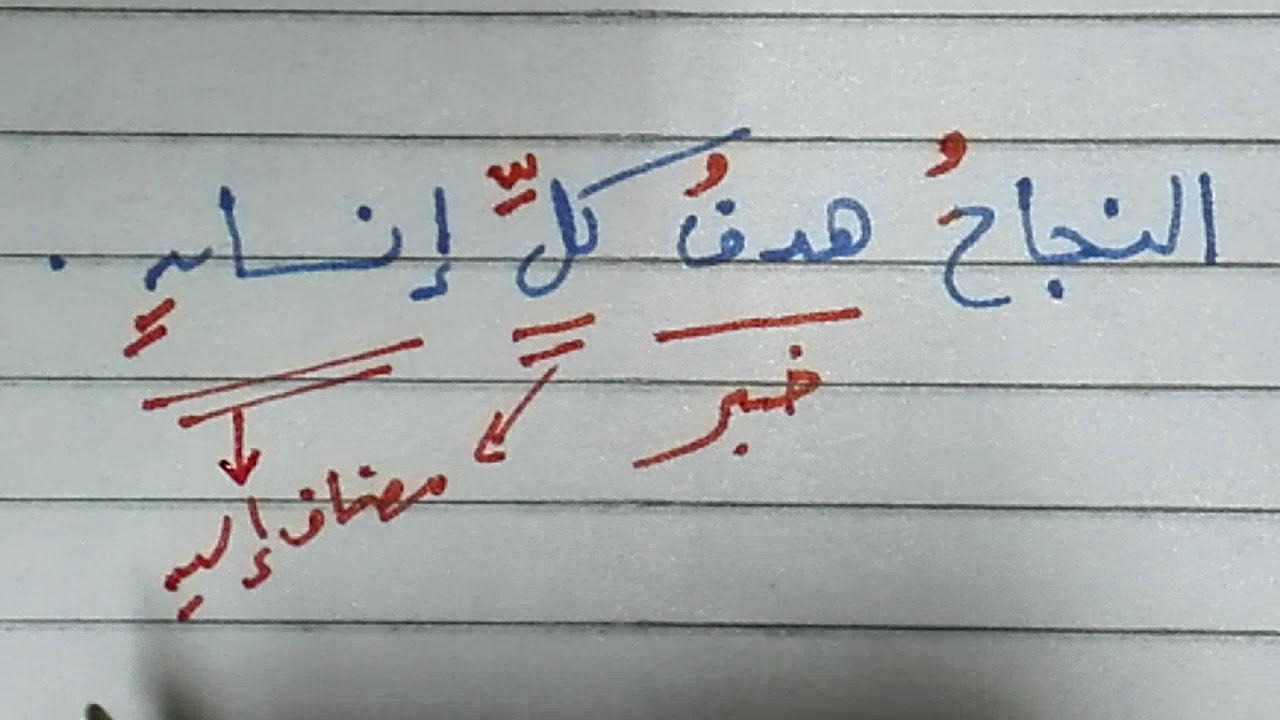 النجاحُ هدفُ كلِّ إنسانٍ .
خبر
مضاف إليه